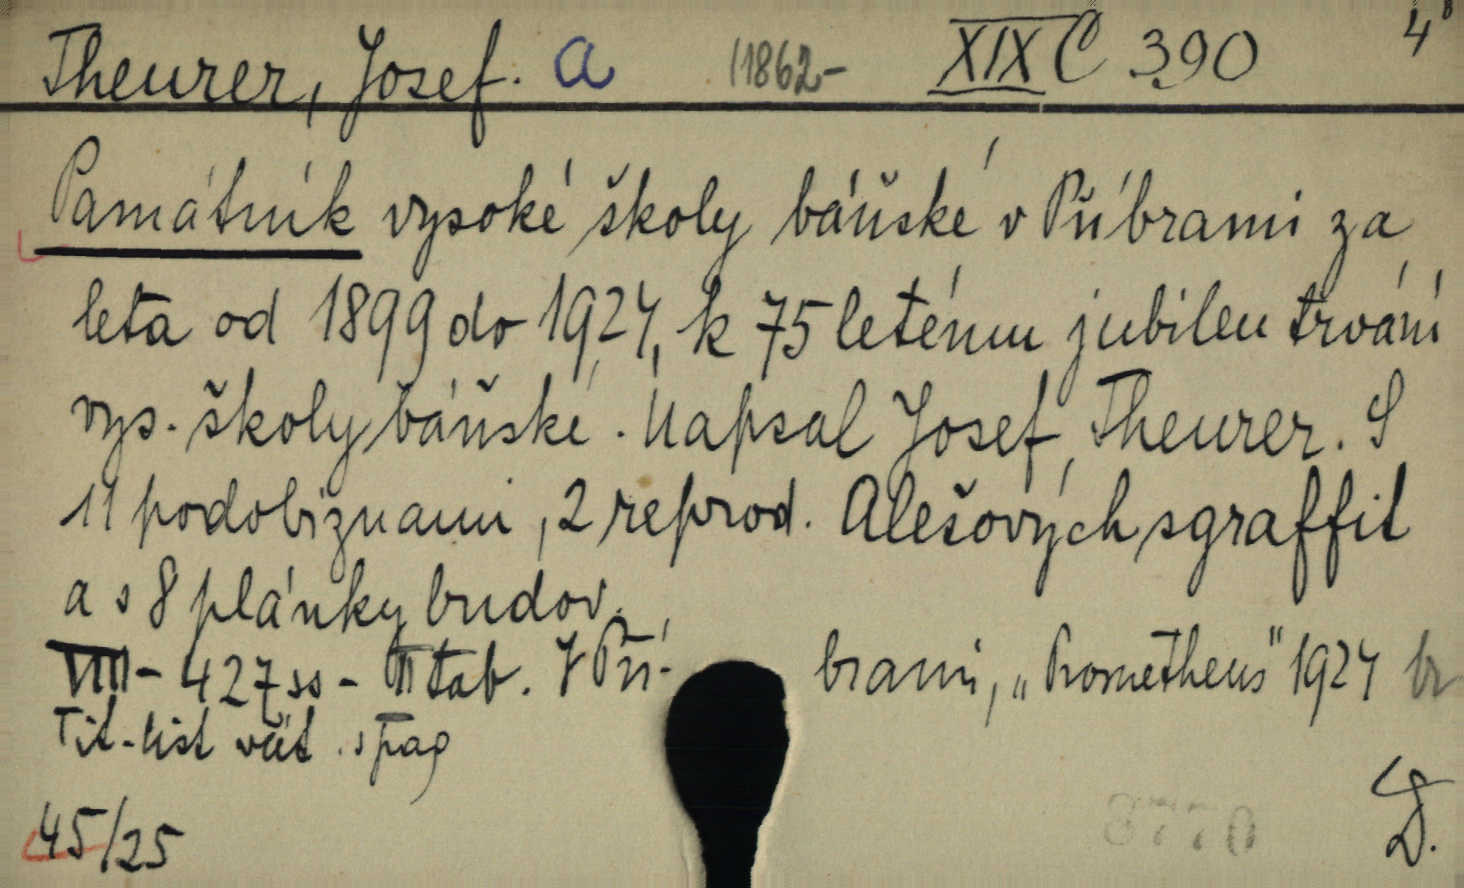 Theurer, Josef. a (1862- XIX C 390 4°
Památník vysoké školy báňské v Příbrami za
leta od 1899 do 1924, k 75 letému jubileu trvání
vys. školy báňské. Napsal Josef Theurer. S
11 podobiznami, 2 reprod. Alešových sgraffit
a s 8 plánky budov.
VIII - 427 ss - II tab. V Pří- brami, „Prometheus" 1924 br
Tit-list
45/25 D.